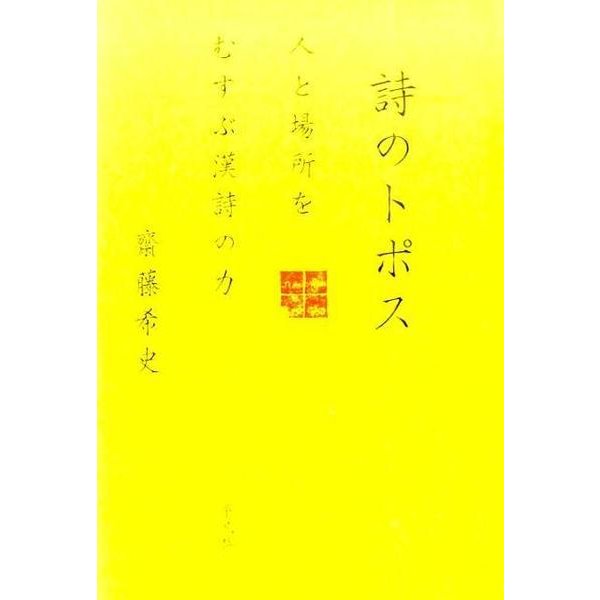 詩のトポス
人と場所を
むすぶ漢詩の力
齋藤希史
平凡社